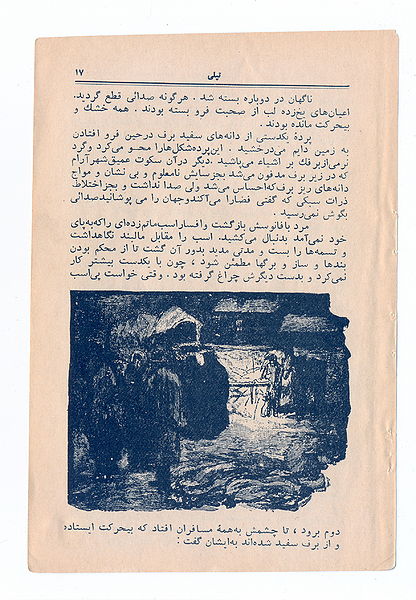 تپلی ۱۷
ناگهان در دوباره بسته شد . هرگونه صدائی قطع گردید.
اعیان‌های یخ‌زده لب از صحبت فرو بسته بودند . همه خشك و
بیحرکت مانده بودند .
پردهٔ یکدستی از دانه‌های سفید برف درحین فرو افتادن
به زمین دایم می‌درخشید . این‌پرده‌شکل‌هارا محو می‌کرد وگرد
نرمی‌ازبرفك بر اشیاء می‌پاشید. دیگر درآن سکوت عمیق‌شهر آرام
که در زیر برف مدفون می‌شد بجز سایش نامعلوم و بی نشان و مواج
دانه‌های ریز برف‌که‌احساس می‌شد ولی صدا نداشت و بجز اختلاط
ذرات سبکی که گفتی فضا را می‌آکند وجهان را می پوشانید صدائی
بگوش نمی‌رسید .
مرد با فانوسش بازگشت و افسار اسب ماتم‌زده‌ای را که به‌پای
خود نمی‌آمد بدنبال می‌کشید. اسب را مقابل مالبند نگاهداشت
و تسمه‌ها را بست و مدتی مدید بدور آن گشت تا از محکم بودن
بندها و ساز و برگها مطمئن شود ، چون با یکدست بیشتر کار
نمی‌کرد و بدست دیگرش چراغ گرفته بود . وقتی خواست پی‌اسب
دوم برود ، تا چشمش به‌همهٔ مسافران افتاد که بیحرکت ایستاده
و از برف سفید شده‌اند به‌ایشان گفت :